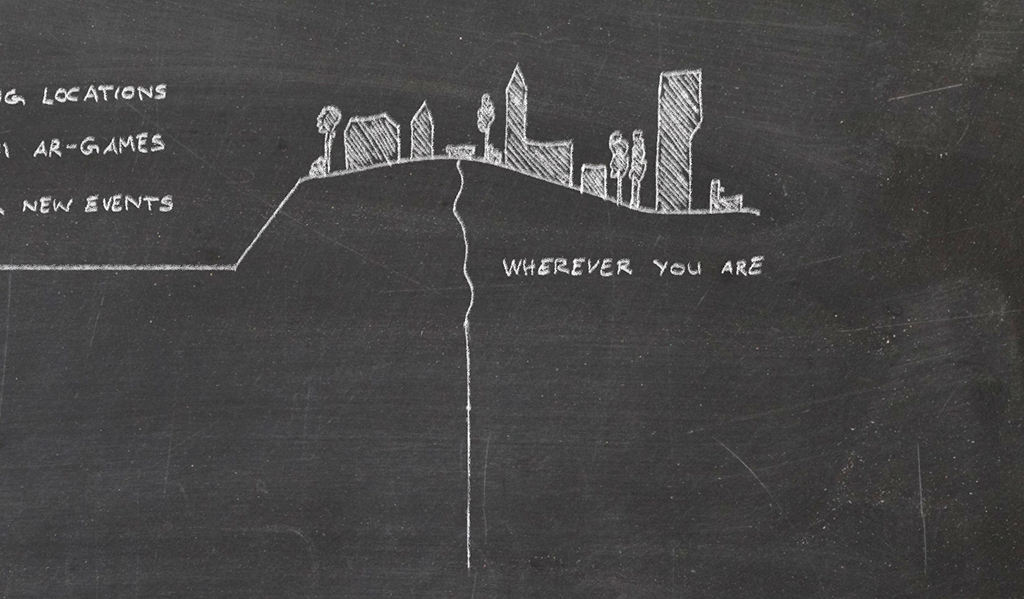 LOCATIONS
AR-GAMES
NEW EVENTS
WHEREVER YOU ARE